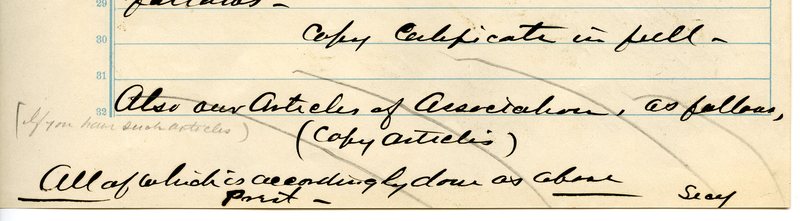 29 follows -
30 Copy Certificate in full -
31
32 Also our Articles of Association, as follows,
(If you have such articles)
(Copy articles)
All of which is accordingly done as above
Prest - Secy